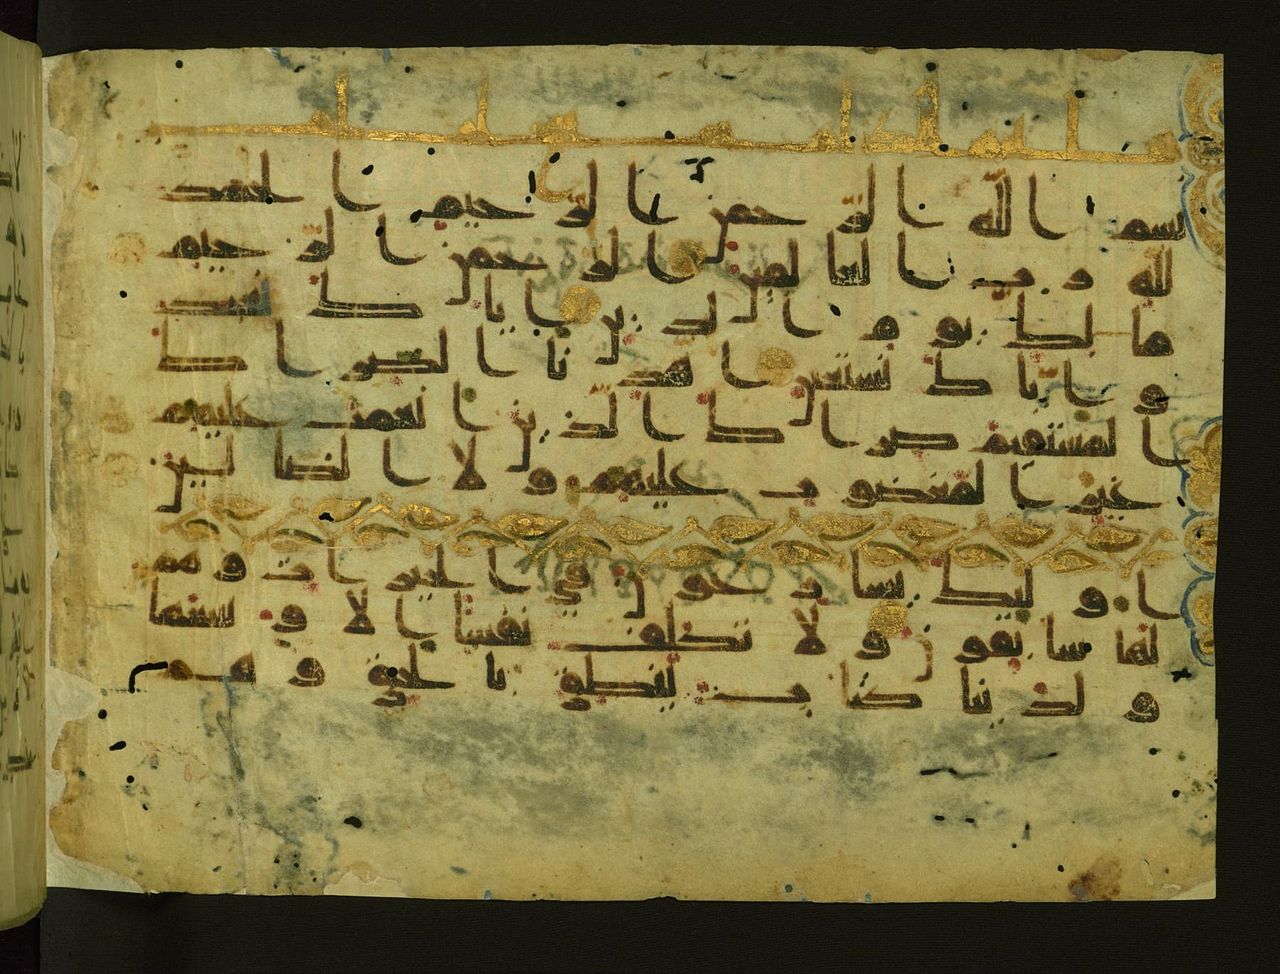 بسم الله الرحمن الرحيم الحمد
لله رب العالمين الرحمن الرحيم
مالك يوم الدين اياك نعبد
و اياك نستعين اهدنا الصراط
المستقيم صراط الذين انعمت عليهم
غير المغضوب عليهم ولا الضالين
اوليك يسارعون في الخيرات وهم
لها سابقون ولا نكلف نفسا الا وسعها
ولدينا كتاب ينطق بالحق وهم